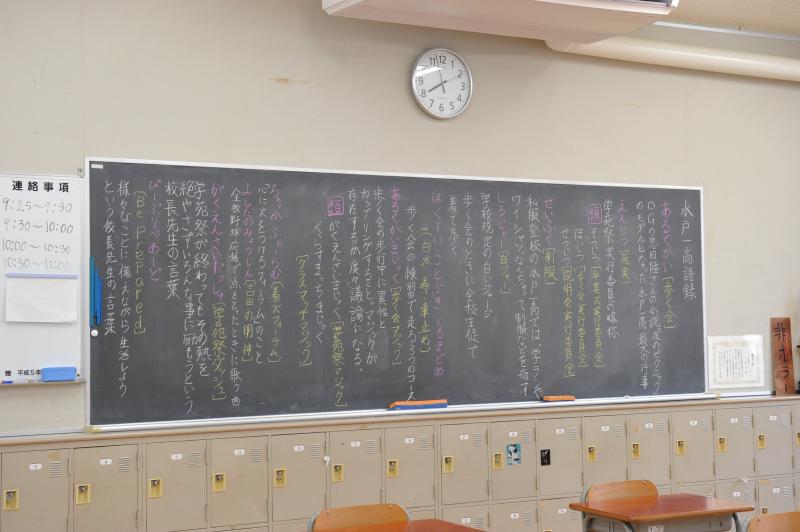 水戸一高語録
あるくかい[歩く会]
OGの恩田陸さんの小説『夜のピクニック』
のモデルともなった水戸一高最大の行事
えんじつ[苑実]
学苑祭実行委員の略称
類
そつじつ[卒業式実行委員会]
ほじつ[歩く会実行委員会]
せつじつ[説明会実行委員会]
せいふく[制服]
私服登校の水戸一高では、学ランや
ワイシャツ
しろじゃー[白ジャー]
学校規定の白いジャージ
歩く会のときに全校生徒で
着て歩く
歩く会の練習で走る3つのコース
あるくかいまじっく[歩く会マジック]
歩く会の歩行中に異性と
カップリングすること。マジックが
存在するか度々議論になる。
類
がくえんさいまじっく[学苑祭マジック]
くらすまっちまじっく
[クラスマッチマジック]
ちゃっかふぉーらむ[着火フォーラム]
心に火をつけるフォーラムのこと
よしだのみょうじん[吉田の明神]
全校野球応援で点をとったときに歌う曲
がくえんさいだっしゅ[学苑祭ダッシュ]
学苑祭が終わってもその熱を
絶やさずいろんな事に励もうという
校長先生の言葉
びーぷりぺあーど
[Be Prepared]
様々なことに備えながら生活しよう
という校長先生の言葉
連絡事項
9:25～9:30
9:30～10:00
10:00～10:30
10:30～11:00
贈 平成5年